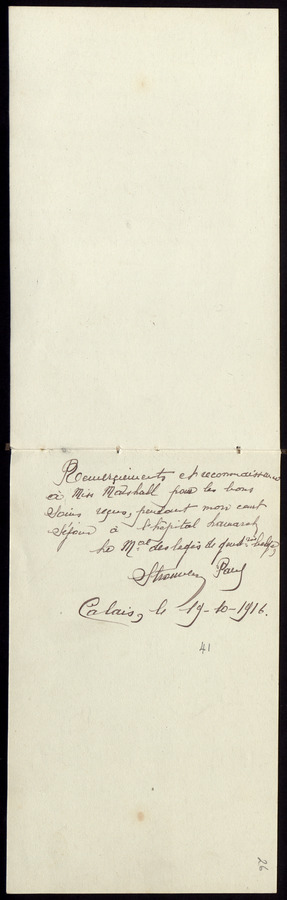 Remerciements et reconnaissance
à Miss Marshall pour les bons
soins reçus, pendant mon court
séjour à l'hôpital Lamarck
Le Mal des logis de gend. belge,
Paul
Calais, le 19-10-1916.
41
26